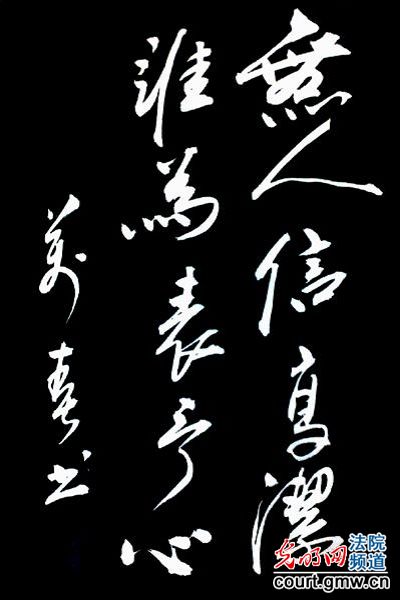 無人信高潔
誰為表予心
萬春书
光明网
法院
频道
court.gmw.cn